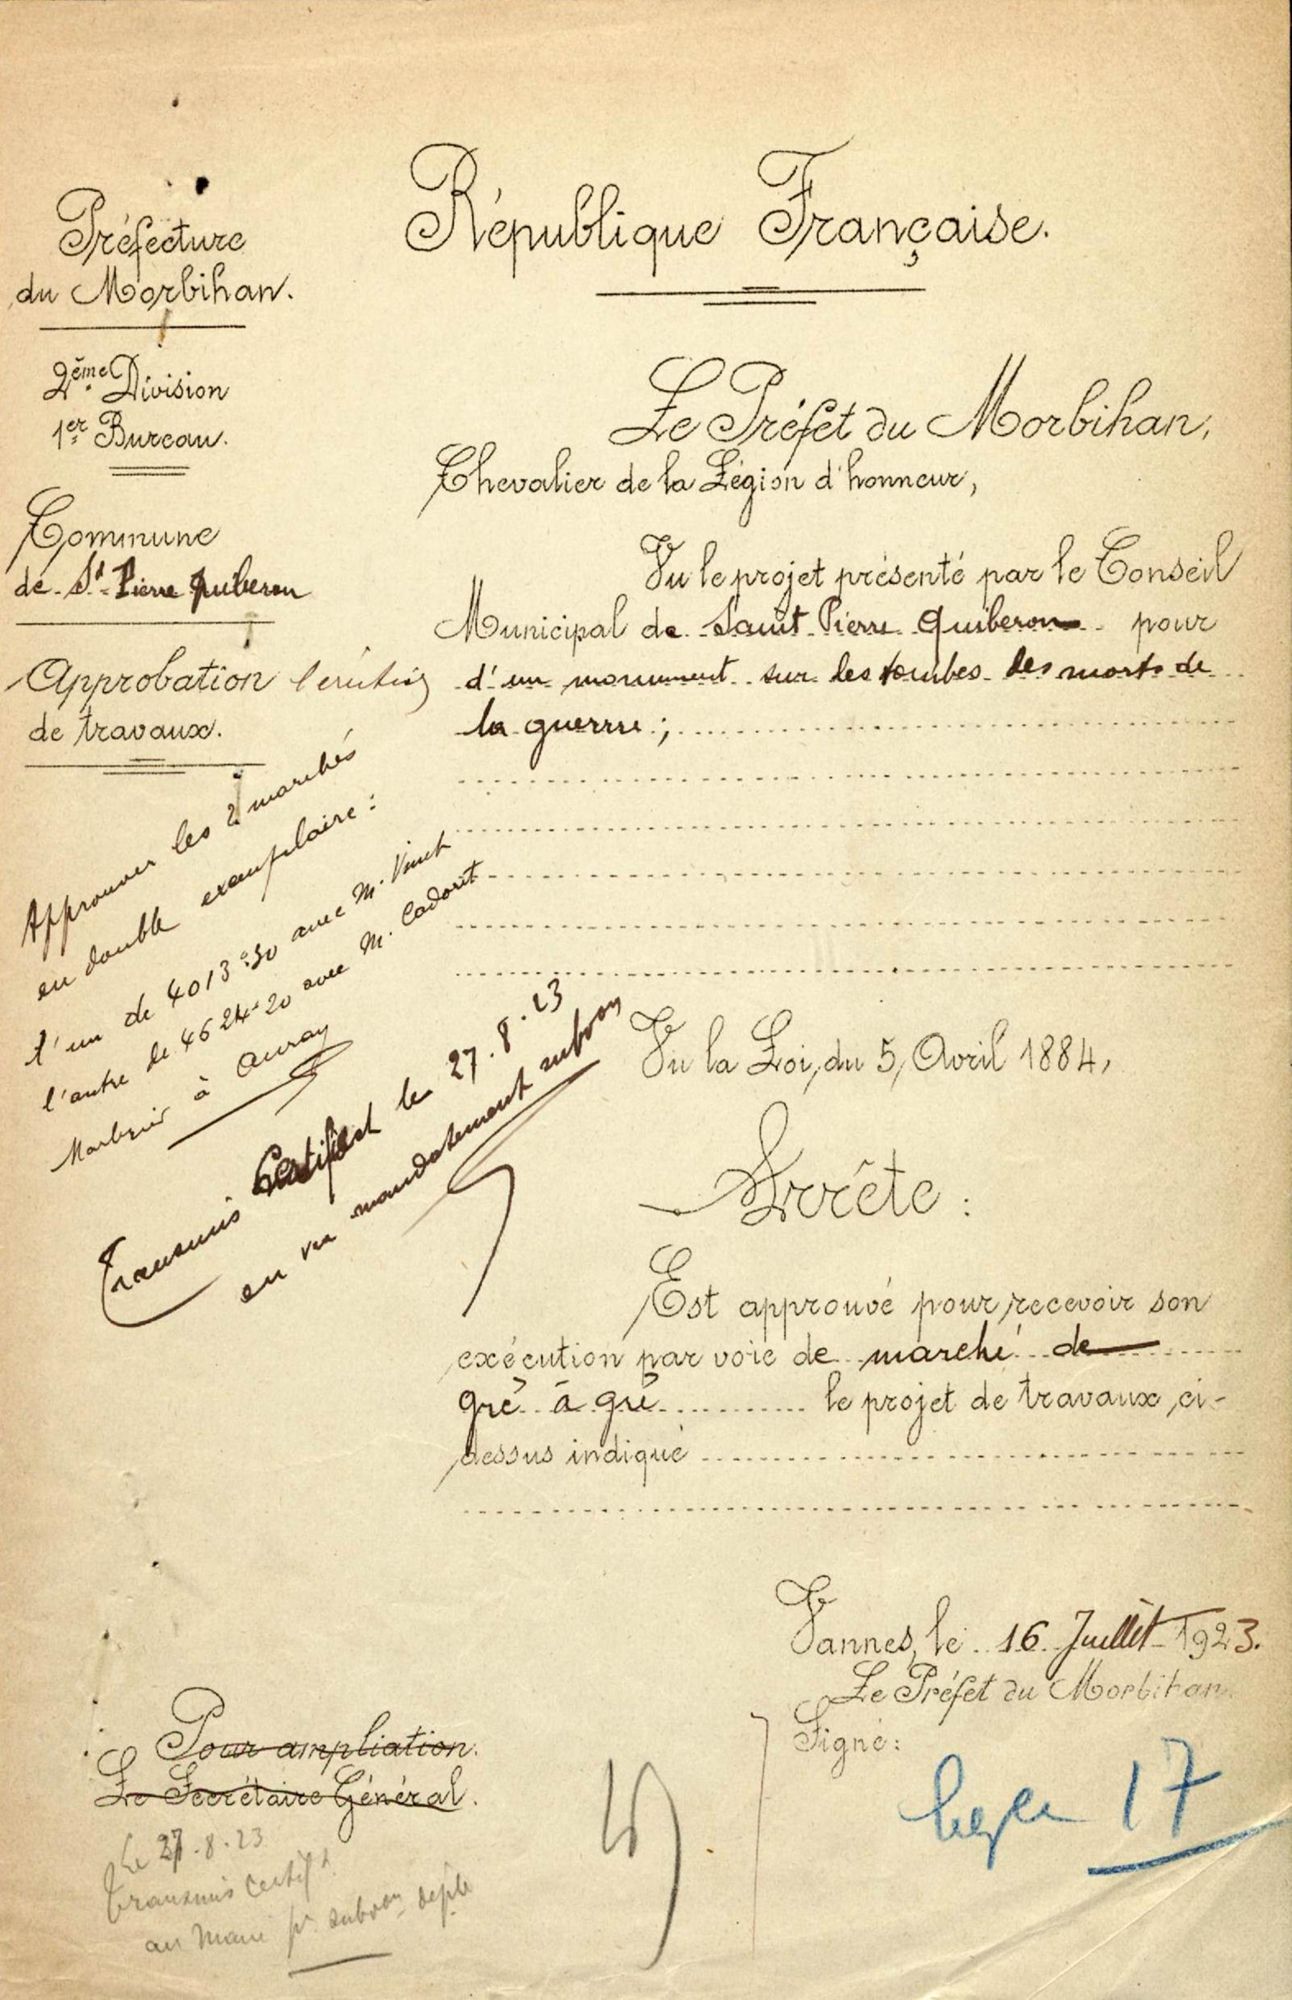 République Française.
Préfecture
du Morbihan.
2ème Division
1er Bureau.
Commune
de St Pierre Quiberon
Approbation
de travaux.
Le Préfet du Morbihan,
Chevalier de la Légion d'honneur,
Vu le projet présenté par le Conseil
Municipal de Saint Pierre Quiberon pour
l'érection d'un monument sur les tombes des morts de
la guerre;
Approuver les 2 marchés
en double exemplaire :
l'un de 4013f.50 avec M.
l'autre de 4624f.20 avec M. Cadoret
à Auray
Transmis Certificat le 27.8.23
en vue mandatement subvon
Vu la Loi, du 5, Avril 1884,
Arrête :
Est approuvé pour recevoir son
exécution par voie de marché de
gré à gré le projet de travaux, ci-
dessus indiqué
Vannes, le 16 Juillet 1923.
Le Préfet du Morbihan
Signé :
Pour ampliation.
Le Secrétaire Général.
Le 27.8.23
transmis certift
au Maire pr subvon déple
17